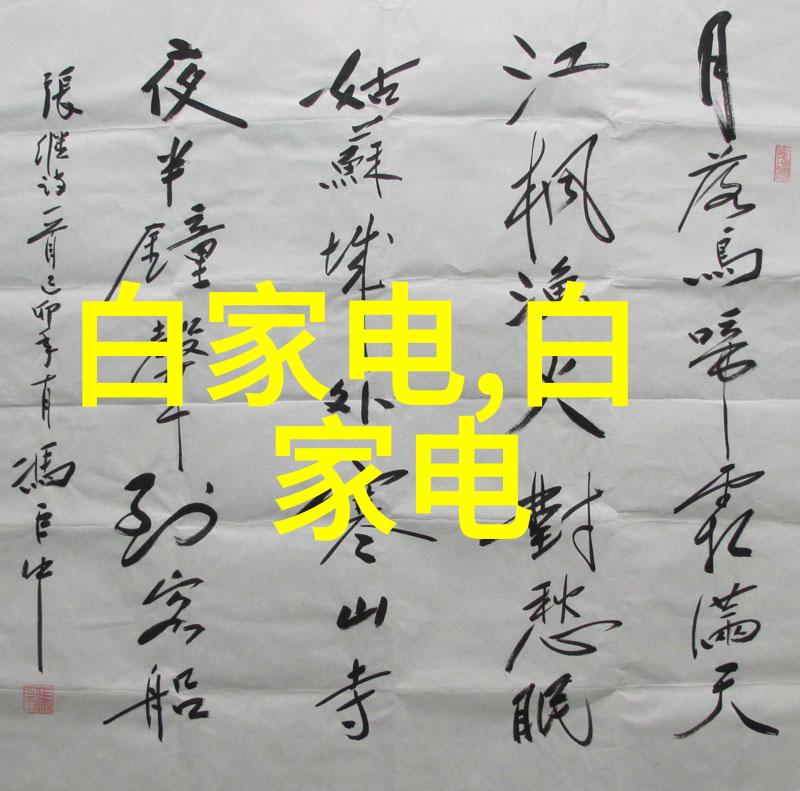 白家电,白
家电
月落烏啼霜滿天
江楓漁火對愁眠
姑蘇城外寒山寺
夜半鐘聲到客船
張继詩一首己卯年 馮臣中